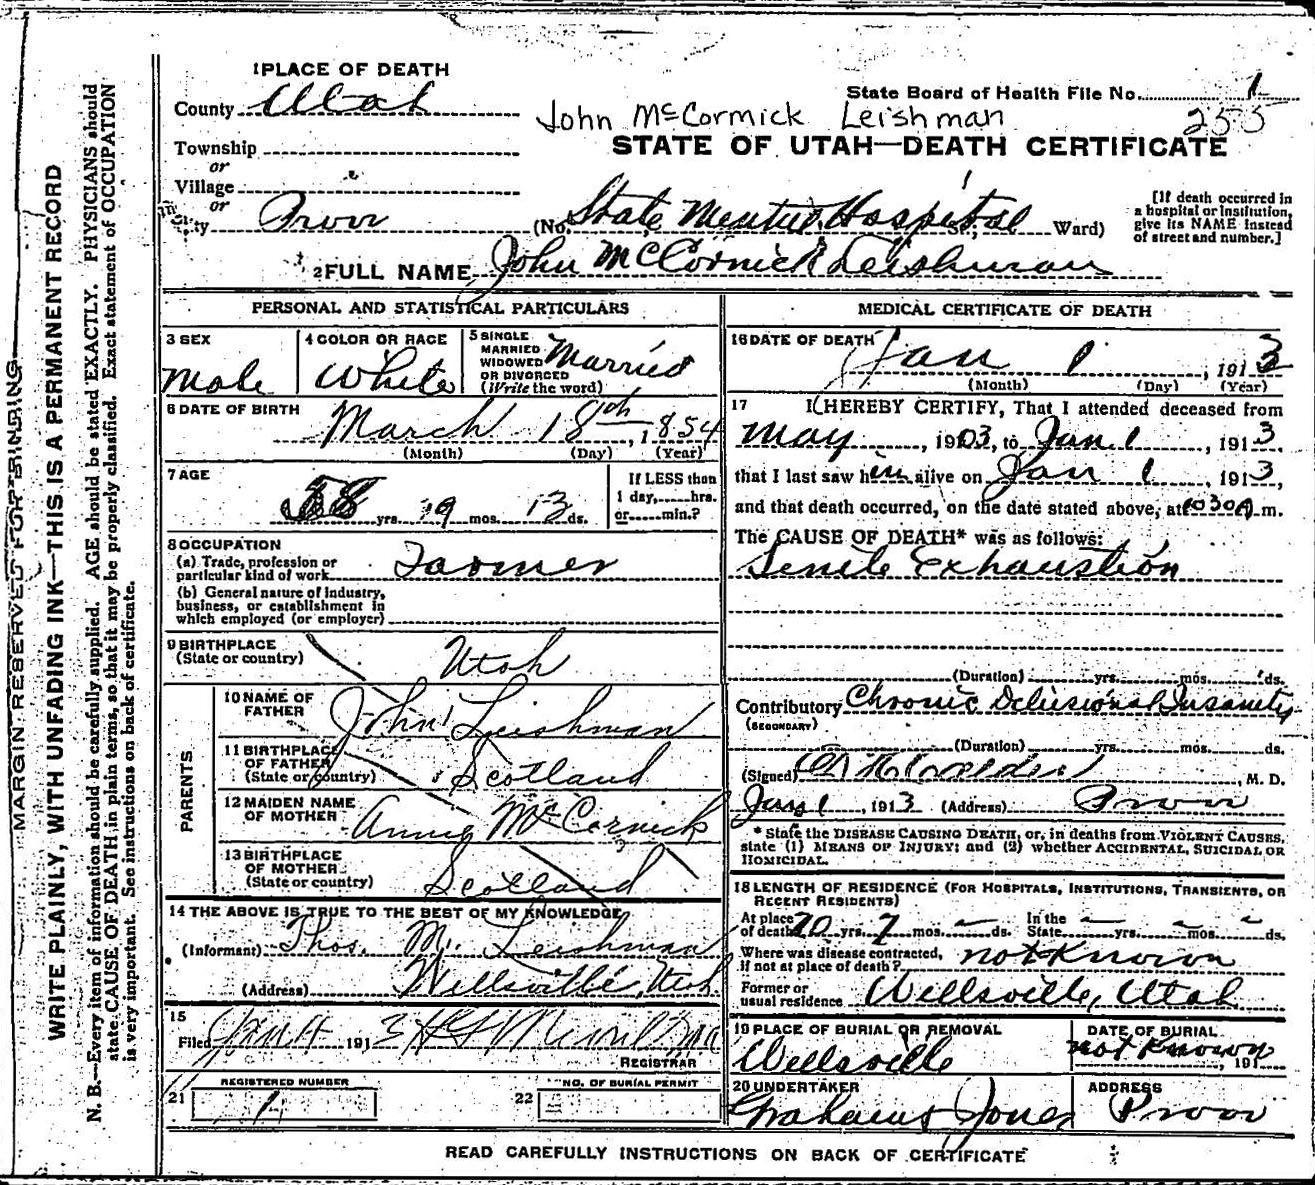 1 PLACE OF DEATH
County Utah
State Board of Health File No. 1
John McCormick Leishman 255
STATE OF UTAH—DEATH CERTIFICATE
Township
or
Village
or
City Provo
(No. State Mental Hospital St.; Ward)
[If death occurred in
a hospital or institution,
give its NAME instead
of street and number.]
2 FULL NAME John McCormick Leishman
PERSONAL AND STATISTICAL PARTICULARS
3 SEX
Male
4 COLOR OR RACE
White
5 SINGLE
MARRIED
WIDOWED
OR DIVORCED
(Write the word)
Married
6 DATE OF BIRTH
March 18th, 1854
(Month) (Day) (Year)
7 AGE
58 yrs. 9 mos. 13 ds.
If LESS than
1 day, hrs.
or min.?
8 OCCUPATION
(a) Trade, profession or
particular kind of work Farmer
(b) General nature of industry,
business, or establishment in
which employed (or employer)
9 BIRTHPLACE
(State or country)
Utah
PARENTS
10 NAME OF
FATHER
John Leishman
11 BIRTHPLACE
OF FATHER
(State or country)
Scotland
12 MAIDEN NAME
OF MOTHER
Annie McCormick
13 BIRTHPLACE
OF MOTHER
(State or country)
Scotland
14 THE ABOVE IS TRUE TO THE BEST OF MY KNOWLEDGE
(Informant) Thos. M. Leishman
(Address) Wellsville, Utah
15
Filed Jan 4 1913
REGISTRAR
REGISTERED NUMBER
21 1
NO. OF BURIAL PERMIT
22
MEDICAL CERTIFICATE OF DEATH
16 DATE OF DEATH
Jan 1, 1913
(Month) (Day) (Year)
17 I HEREBY CERTIFY, That I attended deceased from
May, 1903, to Jan 1, 1913
that I last saw him alive on Jan 1, 1913,
and that death occurred, on the date stated above, at 1030A m.
The CAUSE OF DEATH* was as follows:
Senile Exhaustion
(Duration) yrs. mos. ds.
Contributory Chronic Delusional Insanity
(SECONDARY)
(Duration) yrs. mos. ds.
(Signed) M. D.
Jany 1, 1913 (Address) Provo
* State the DISEASE CAUSING DEATH, or, in deaths from VIOLENT CAUSES,
state (1) MEANS OF INJURY; and (2) whether ACCIDENTAL, SUICIDAL OR
HOMICIDAL.
18 LENGTH OF RESIDENCE (FOR HOSPITALS, INSTITUTIONS, TRANSIENTS, OR
RECENT RESIDENTS)
At place
of death 20 yrs. 7 mos. — ds.
In the
State — yrs. — mos. — ds.
Where was disease contracted,
if not at place of death? not Known
Former or
usual residence Wellsville, Utah
19 PLACE OF BURIAL OR REMOVAL
Wellsville
DATE OF BURIAL
not Known, 191
20 UNDERTAKER
Jones
ADDRESS
Provo
READ CAREFULLY INSTRUCTIONS ON BACK OF CERTIFICATE
MARGIN RESERVED FOR BINDING
WRITE PLAINLY, WITH UNFADING INK—THIS IS A PERMANENT RECORD
N. B.—Every item of information should be carefully supplied. AGE should be stated EXACTLY. PHYSICIANS should
state CAUSE OF DEATH in plain terms, so that it may be properly classified. Exact statement of OCCUPATION
is very important. See instructions on back of certificate.